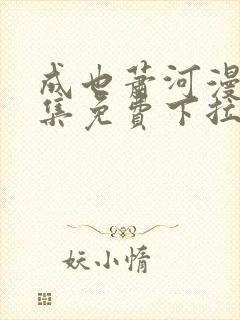 成也萧河漫
集免費下拉
妖小惰